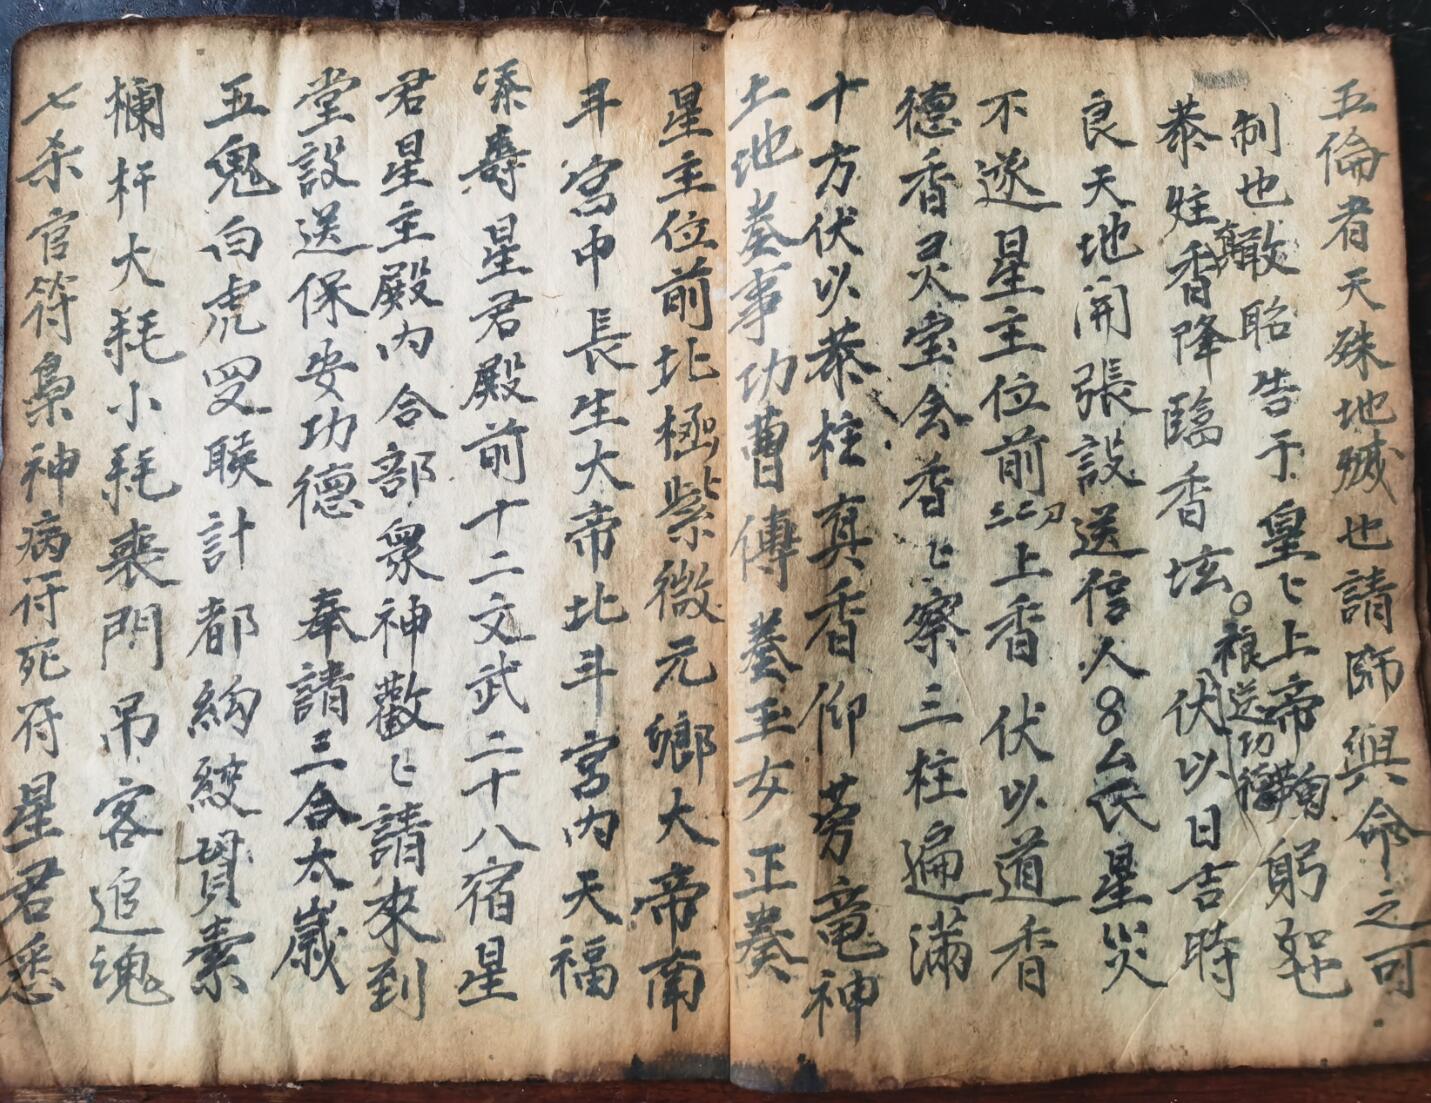 五倫者天殊地滅也請師與命之可
制也敢昭告于皇〻上帝鞠躬
恭炷香降臨香坛 伏以日吉時
禄送功德
良天地開張設送信人8厶民星災
不遂星主位前三二刀上香伏以道香
德香灵宝会香〻察三柱遍滿
十方伏以恭柱真香仰芳竜神
土地奏事功曹傳奏玉女正奏
星主位前北極紫微元鄉大帝南
斗宮中長生大帝北斗宮内天福
添壽星君殿前十二文武二十八宿星
君星主殿内合部衆神歡〻請來到
堂設送保安功德 奉請三合太歲
五鬼白虎叉睺計都絇絞貫索
欄杆大耗小耗喪門吊客追魂
七杀官符梟神病符死符星君悉